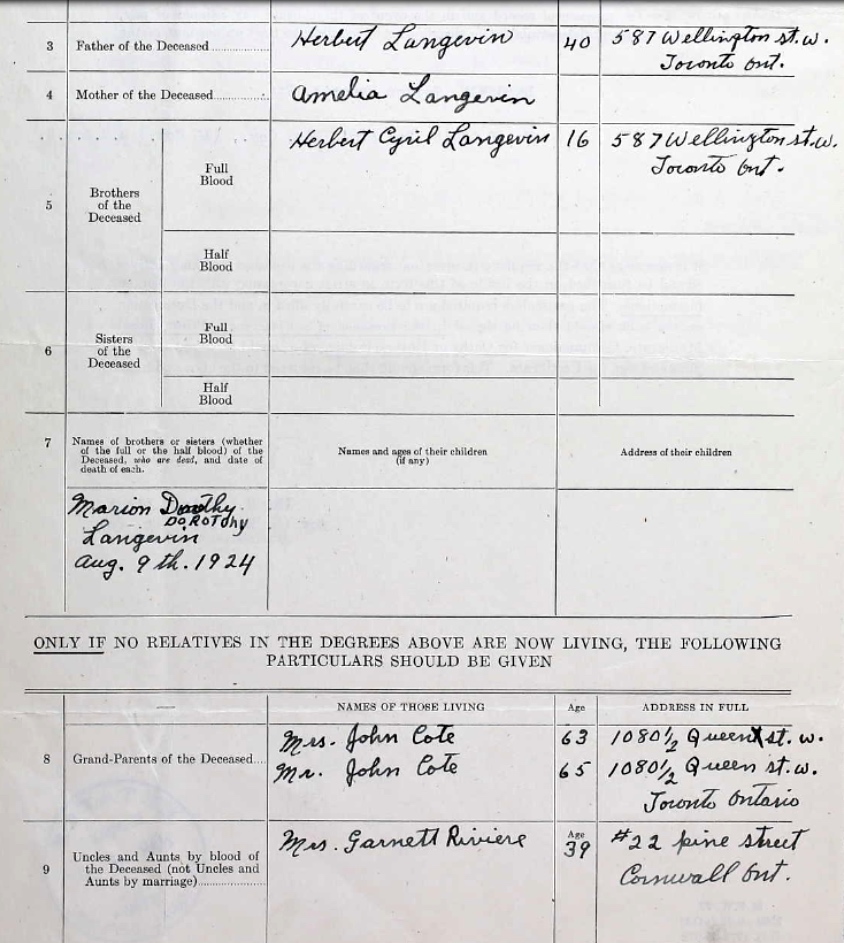 3 Father of the Deceased Herbert Langevin 40 587 Wellington st. w.
Toronto Ont.
4 Mother of the Deceased Amelia Langevin
Herbert Cyril Langevin 16 587 Wellington st. w.
Toronto Ont.
Full
Blood
5 Brothers
of the
Deceased
Half
Blood
Full
Blood
6 Sisters
of the
Deceased
Half
Blood
7 Names of brothers or sisters (whether
of the full or the half blood) of the
Deceased, who are dead, and date of
death of each.
Names and ages of their children
(if any)
Address of their children
Marion Dorothy
DOROTHY
Langevin
Aug. 9th. 1924
ONLY IF NO RELATIVES IN THE DEGREES ABOVE ARE NOW LIVING, THE FOLLOWING
PARTICULARS SHOULD BE GIVEN
NAMES OF THOSE LIVING Age ADDRESS IN FULL
8 Grand-Parents of the Deceased Mrs. John Cote 63 1080½ Queen st. w.
Mr. John Cote 65 1080½ Queen st. w.
Toronto Ontario
9 Uncles and Aunts by blood of
the Deceased (not Uncles and
Aunts by marriage)
Mrs. Garnett Riviere Age 39 #22 pine street
Cornwall Ont.